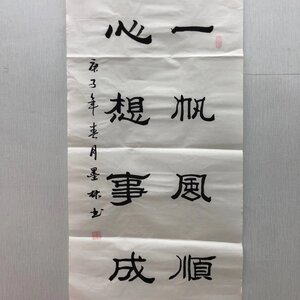 一帆風順
心想事成
庚子年春月墨林书